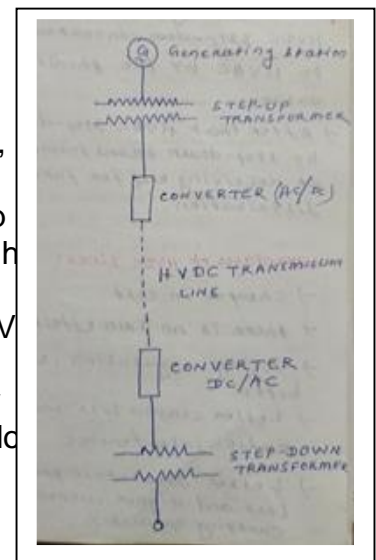 G Generating station
STEP-UP
TRANSFORMER
CONVERTER (AC/DC)
HVDC TRANSMISSION
LINE
CONVERTER
DC/AC
STEP-DOWN
TRANSFORMER